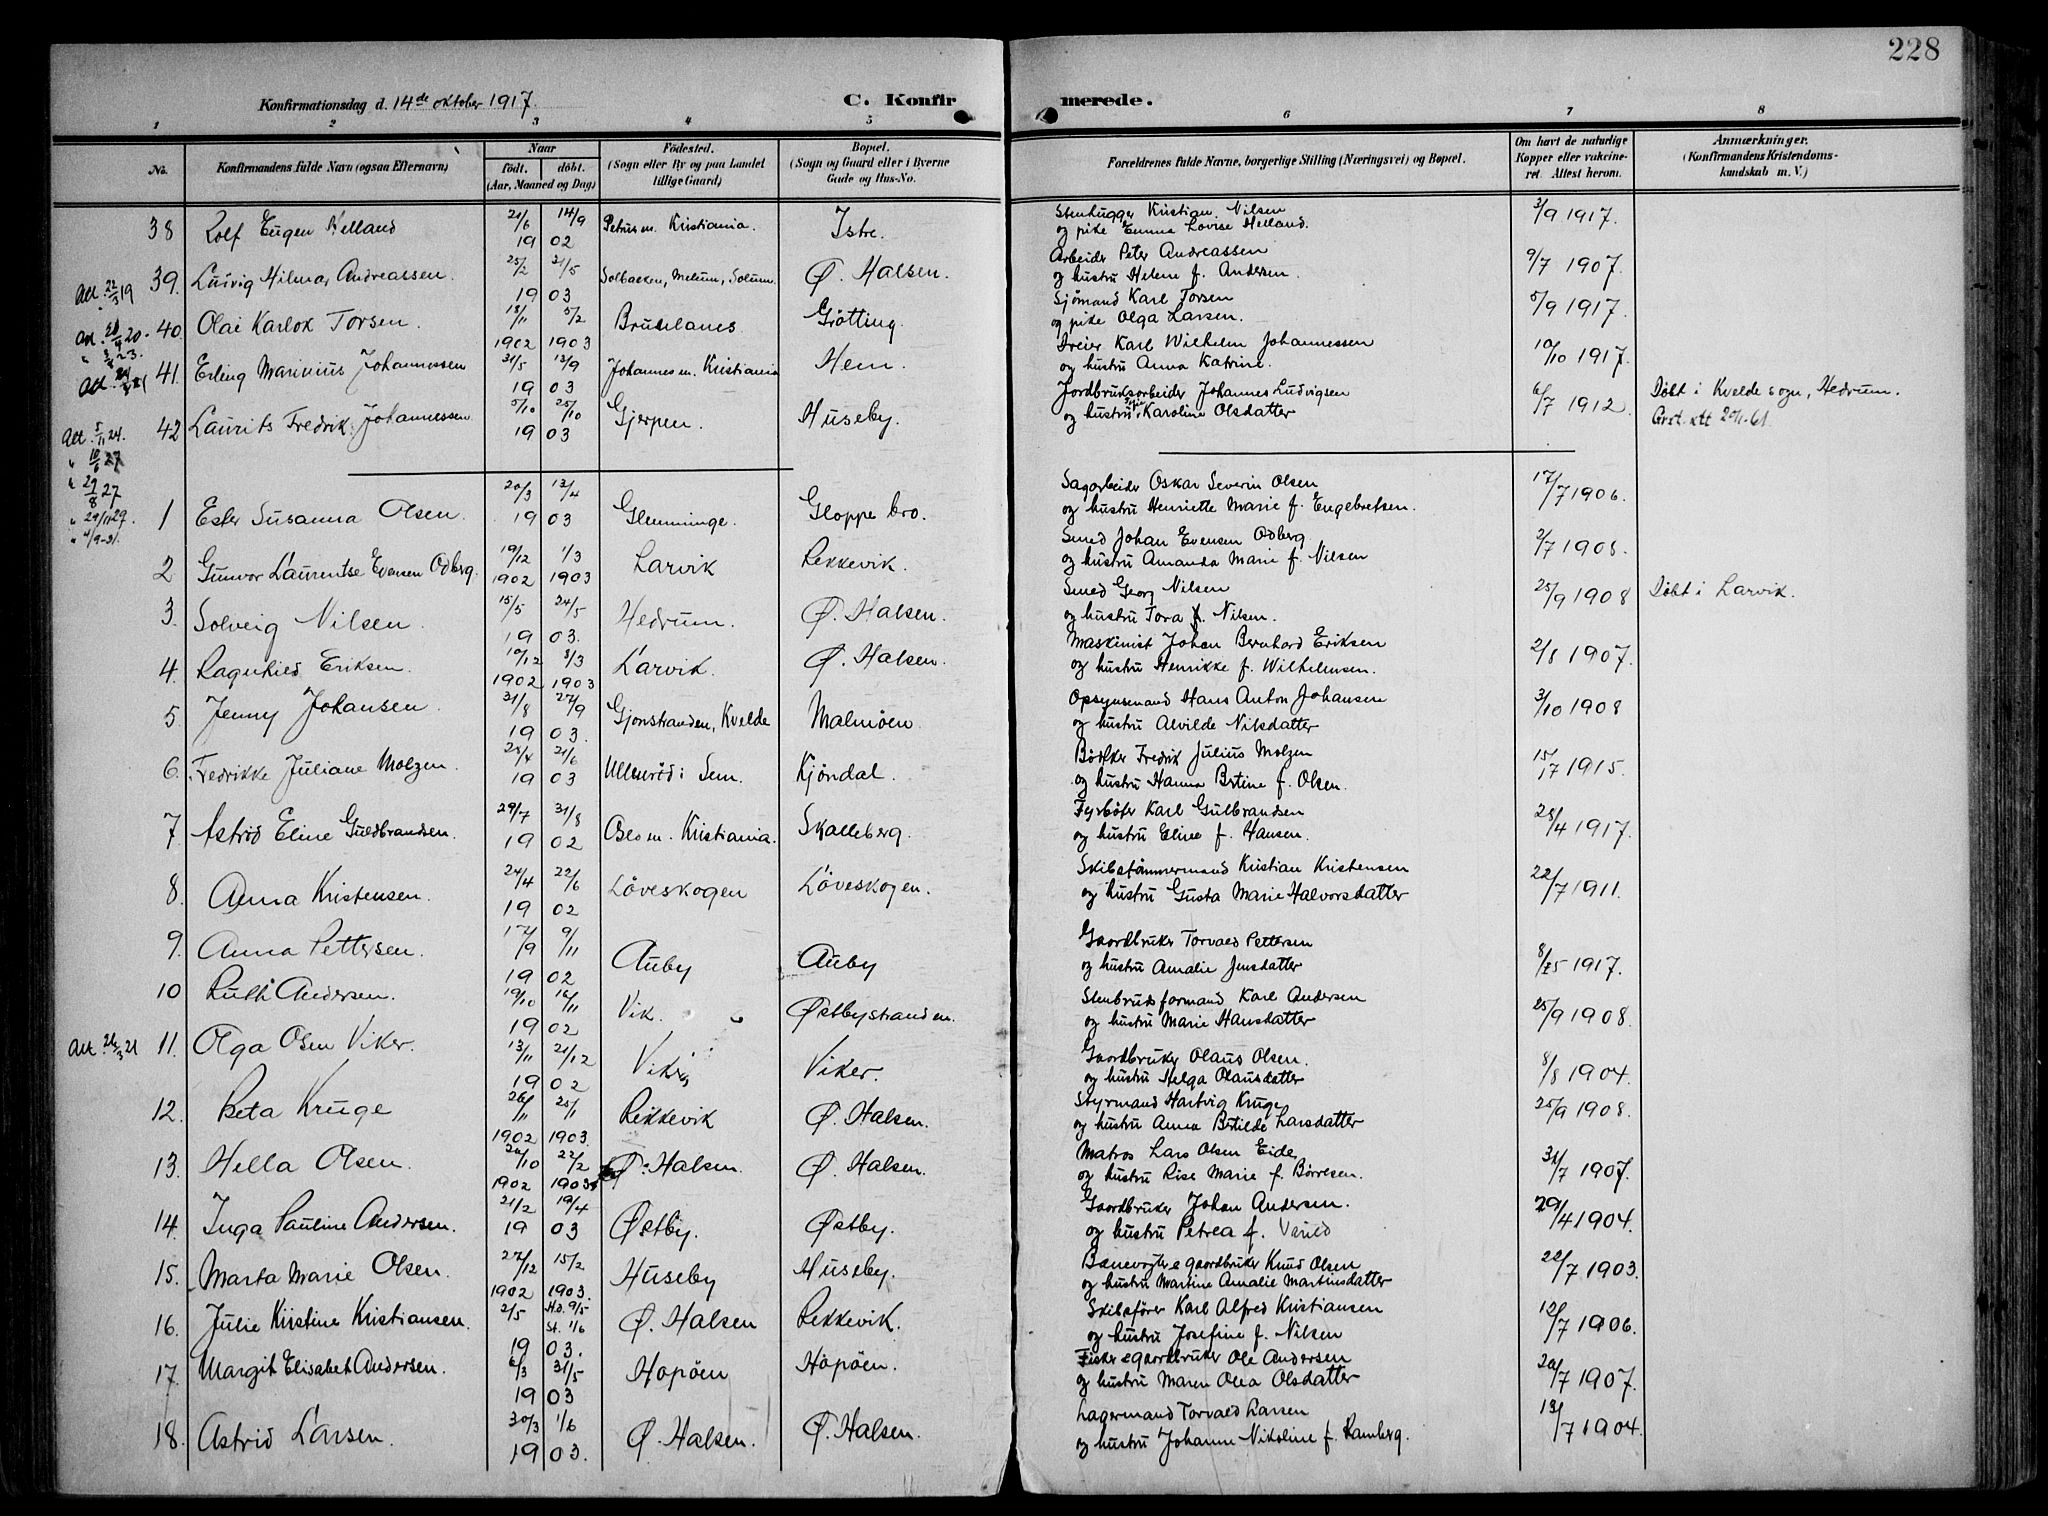 228
Konfirmationsdag d. 14de oktober 1917. C. Konfirmerede.
1 2 3 4 5 6 7 8
No. Konfirmandens fulde Navn (ogsaa Efternavn) Naar født. døbt. (Aar, Maaned og Dag) Födested. (Sogn eller By og paa Landet tillige Gaard) Bopæl. (Sogn og Gaard eller i Byerne Gade og Hus-No. Forældrenes fulde Navne, borgerlige Stilling (Næringsvei) og Bopæl. Om havt de naturlige Kopper eller vakcineret. Attest herom. Anmærkninger. (Konfirmandens Kristendomskundskab m. V.)
38 Rolf Eugen Helland 21/6 14/9 1902 Petrus m. Kristiania. Istre. Stenhugger Kristian Nilsen og pike Emma Lovise Helland. 3/9 1917.
Att. 22/3 19 39. Ludvig Hilmar Andreassen. 25/2 21/5 1903 Solbakken, Melum, Solum. Ø. Halsen. Arbeider Peter Andreassen og hustru Helene f. Andersen. 9/7 1907.
40. Olai Karlot Torsen. 18/11 1902 5/2 1903 Brunlanes Grötting. Sjömand Karl Torsen og pike Olga Larsen. 5/9 1917.
41. Erling Marinius Johannessen 31/5 13/9 1903 Johannes m. Kristiania Hem. Dreier Karl Wilhelm Johannessen og hustru Anna Katrine. 10/10 1917.
Att. 5/11 24. 42 Laurits Fredrik Johannessen 5/10 25/10 1903 Gjerpen. Huseby. Jordbruksarbeider Johannes Ludvigsen og hustru Karoline Olsdatter 6/7 1912. Døbt i Kvelde sogn, Hedrum.
" 10/6 27
" 29/8 27
" 29/11 29.
1 Ester Susanna Olsen. 20/3 12/4 1903 Glemminge. Gloppe bro. Sagarbeider Oskar Severin Olsen og hustru Henriette Marie f. Engebretsen. 17/7 1906.
2 Gunvor Laurentse Evensen Odberg. 19/12 1902 1/3 1903 Larvik Rekkevik. Smed Johan Evensen Odberg og hustru Amanda Marie f. Nilsen 2/7 1908.
3. Solveig Nilsen. 15/5 24/5 1903. Hedrum. Ø. Halsen. Smed Georg Nilsen og hustru Tora f. Nilsen. 25/9 1908 Døbt i Larvik.
4. Ragnhild Eriksen. 10/12 1902 8/3 1903 Larvik. Ø. Halsen. Maskinist Johan Bernhard Eriksen og hustru Henrikke f. Wilhelmsen. 2/8 1907.
5. Jenny Johansen. 31/8 27/9 1903. Gjonstranden, Kvelde Malmöen. Opsynsmand Hans Anton Johansen og hustru Alvilde Nilsdatter 3/10 1908
6. Fredrikke Juliane Molzen. 25/4 21/6 1903 Ullevröd i Sem. Kjöndal. Bödker Fredrik Julius Molzen og hustru Hanna Bertine f. Olsen. 1915.
7. Astrid Eline Guldbrandsen. 29/7 31/8 1902 Oslo m. Kristiania. Skalleberg. Fyrböter Karl Gulbrandsen og hustru Eline f. Hansen. 28/4 1917.
8. Anna Kristensen. 24/4 22/6 1902 Löveskogen Löveskogen. Skibstömmermand Kristian Kristensen og hustru Gusta Marie Halvorsdatter 22/7 1911.
9. Anna Pettersen. 17/9 9/11 1902 Auby Auby Gaardbruker Torvald Pettersen og hustru Amalie Jensdatter 8/5 1917.
10 Ruth Andersen. 19/10 16/11 1902 Vik. Østbystranden. Stenbrudsformand Karl Andersen og hustru Marie Hansdatter 25/9 1908.
11. Olga Olsen Viker. 13/11 21/12 1902 Viker Viker. Gaardbruker Olaus Olsen. og hustru Helga Olausdatter 8/8 1904.
12. Beta Kruge 26/11 1902 25/1 1903. Rekkevik Ø. Halsen. Styrmand Hartvig Kruge og hustru Anna Bertilde Larsdatter 25/9 1908.
13. Hella Olsen. 20/10 1902 22/2 1903 Ø. Halsen. Ø. Halsen. Matros Lars Olsen Eide og hustru Rise Marie f. Börresen. 31/7 1907.
14. Inga Pauline Andersen. 21/2 19/4 1903 Østby. Østby. Gaardbruker Johan Andersen. og hustru Petrea f. 29/4 1904.
15. Marta Marie Olsen. 27/12 1902 15/2 1903. Huseby Huseby. Banevogter e gaardbruker Knud Olsen og hustru Martine Amalie Martinsdatter 22/7 1903.
16. Julie Kristine Kristiansen. 2/5 Hd. 9/5 St. 1/6 1903. Ø. Halsen Rekkevik. Skibsförer Karl Alfred Kristiansen og hustru Josefine f. Nilsen 12/7 1906.
17. Margit Elisabet Andersen. 6/3 31/5 1903 Hopöen Hopöen. Fisker e gaardbruker Ole Andersen og hustru Maren Olea Olsdatter 20/7 1907.
18. Astrid Larsen. 30/3 1/6 1903. Ø. Halsen. Ø. Halsen. Lagermand Torvald Larsen og hustru Johanne Nikoline f. Ramberg. 13/7 1904.